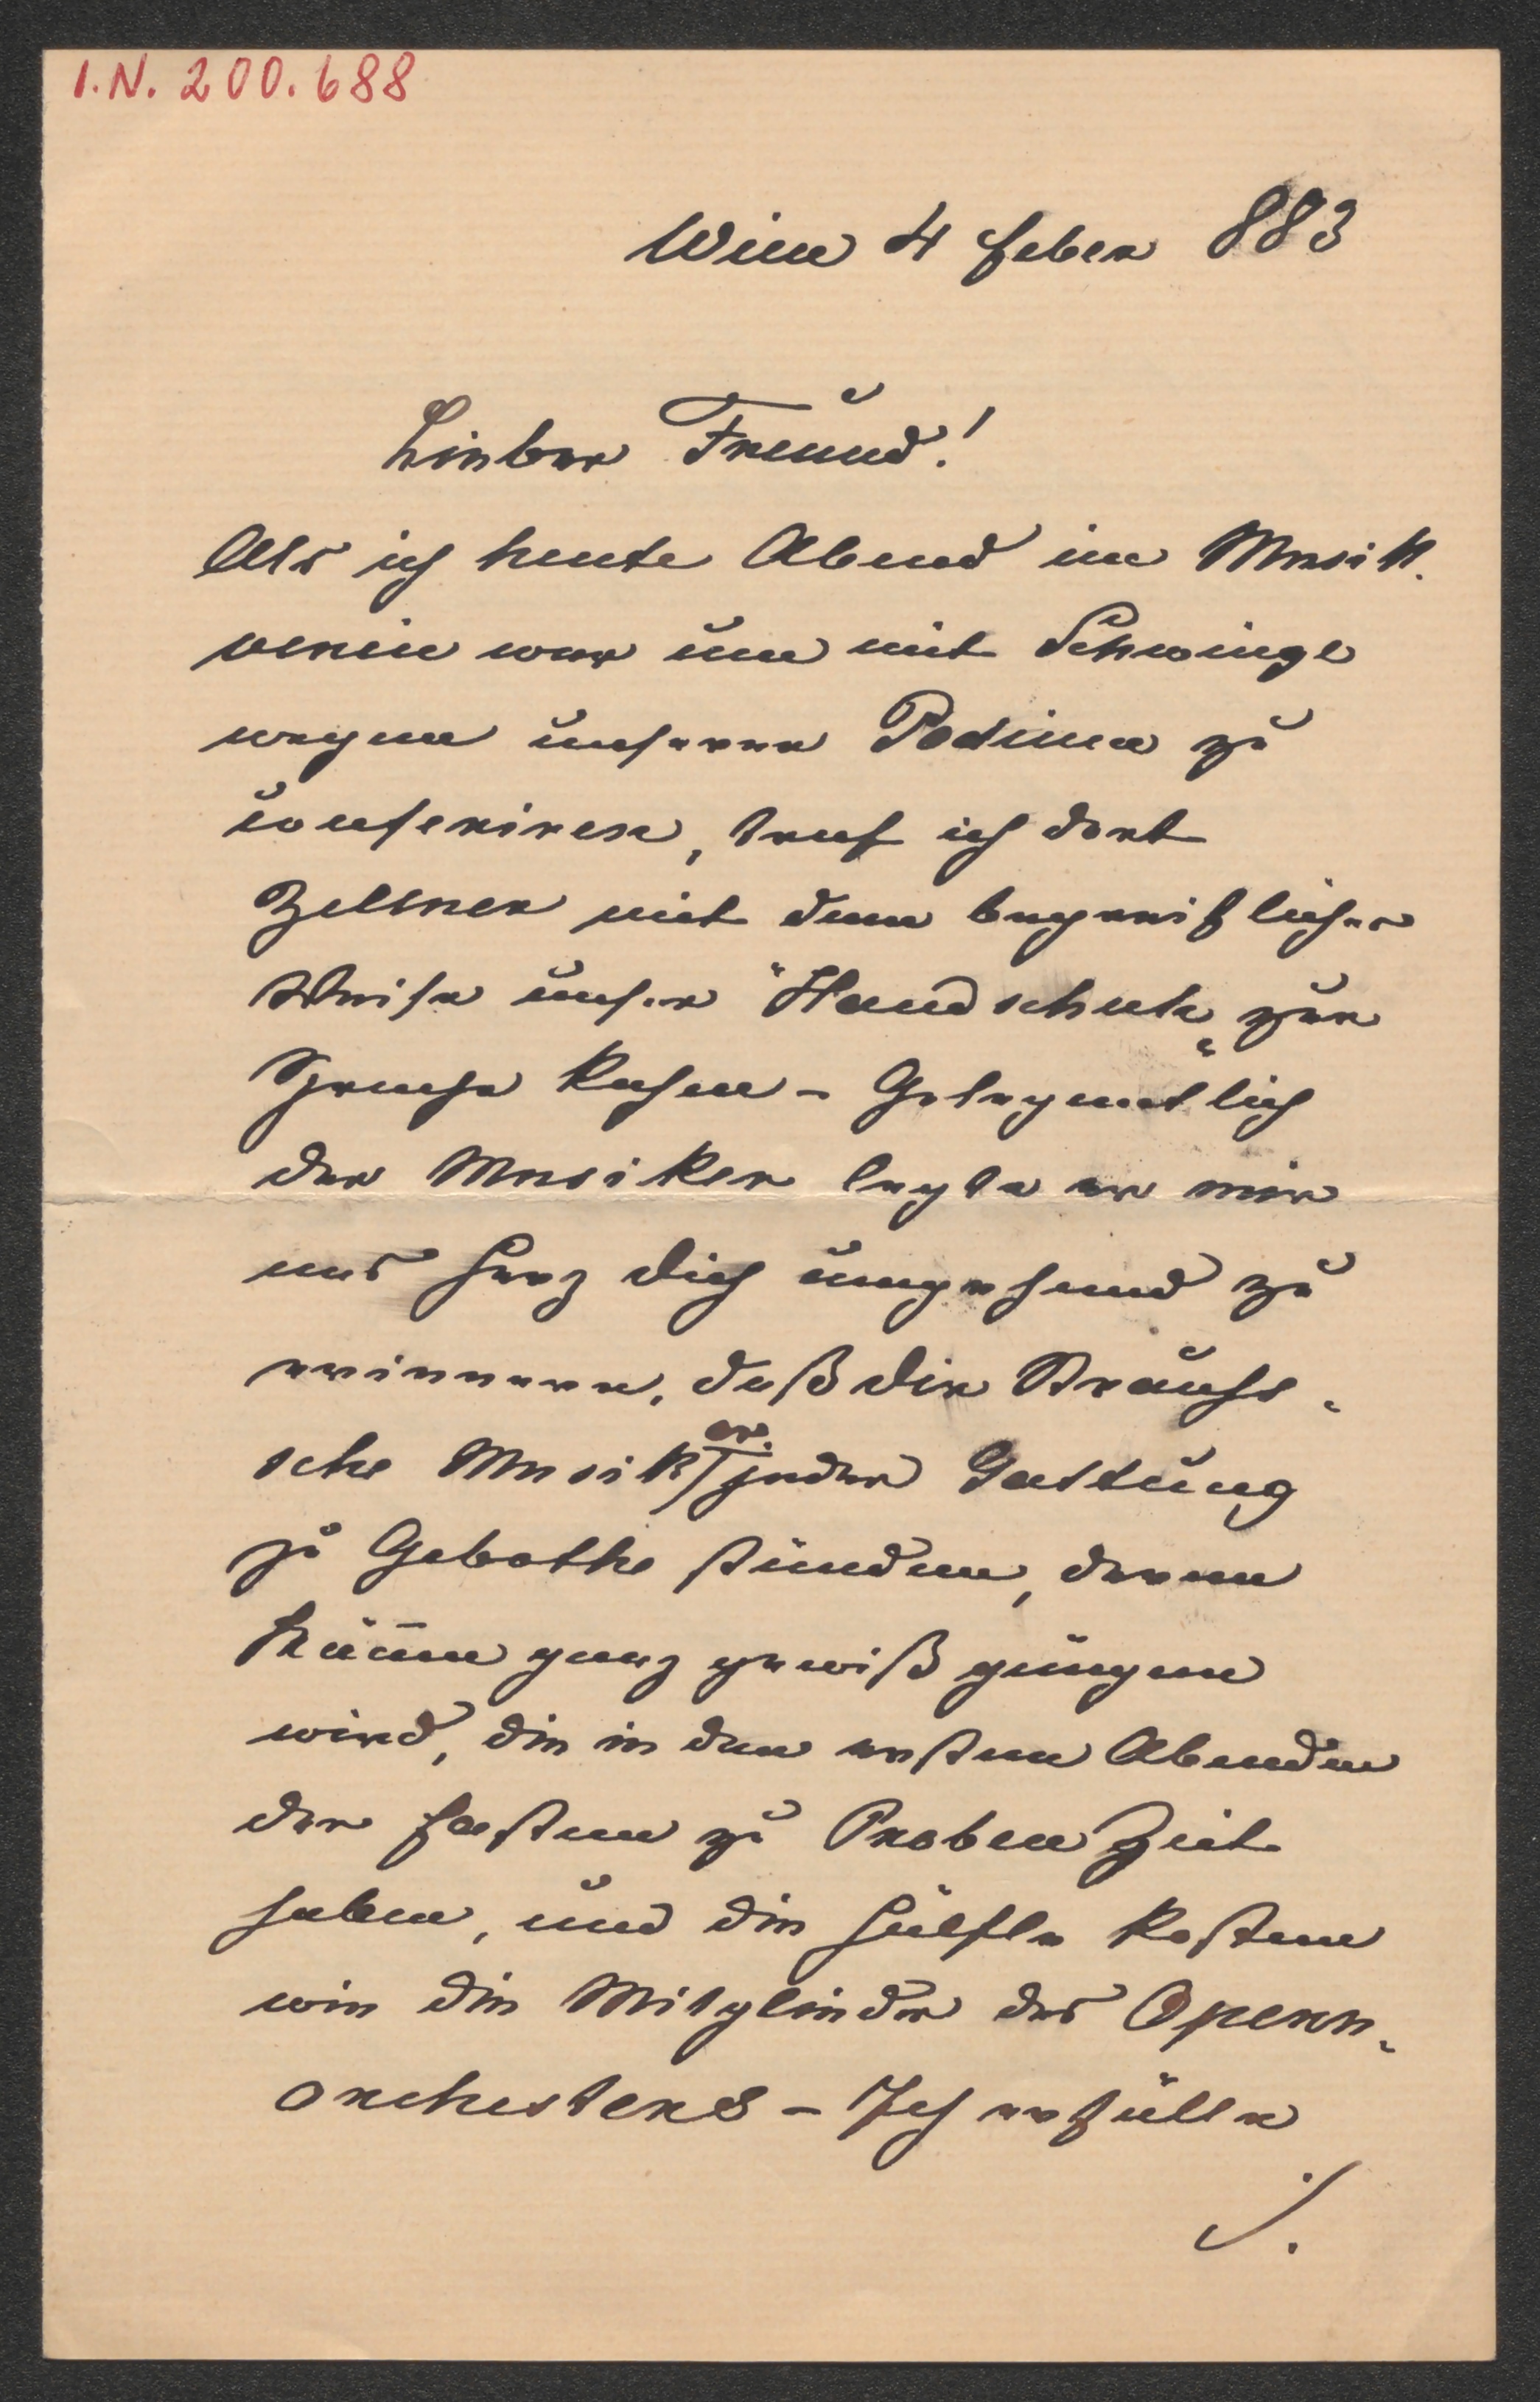 I.N. 200.688
Wien 4 Feber 883
Lieber Freund!
Als ich heute Abend im Musik-
verein war um mit Schwinge
wegen unserer Podium zu
conferiren, traf ich dort
Zellner mit dem begreiflicher
Weise unser "Handschuh" zur
Sprache kam - Gelegentlich
der Musiker legte er mir
ans Herz dich umgehend zu
erinnern, daß die Strauß-
sche Musik er. jeder Gattung
zu Gebothe stünden, deren
ganz gewiß
wird, die in den ersten Abenden
der Fasten zu Proben Zeit
haben, und die Hälfte kosten
wie die Mitglieder des Opern-
orchesters - Ich erfülle
./.